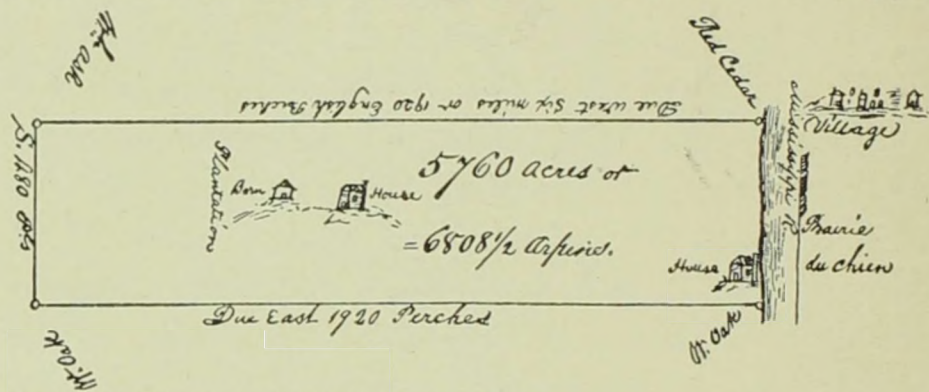 Wh. Ash
Red Cedar
Due West Six miles or 1920 English Perches
Mississippi R.
Village
S. 480 ps
Plantation
Barn
House
5760 acres or
= 6808 1/2 Arpens.
House
Prairie
du chien
Due East 1920 Perches
W. Oak
W. Oak